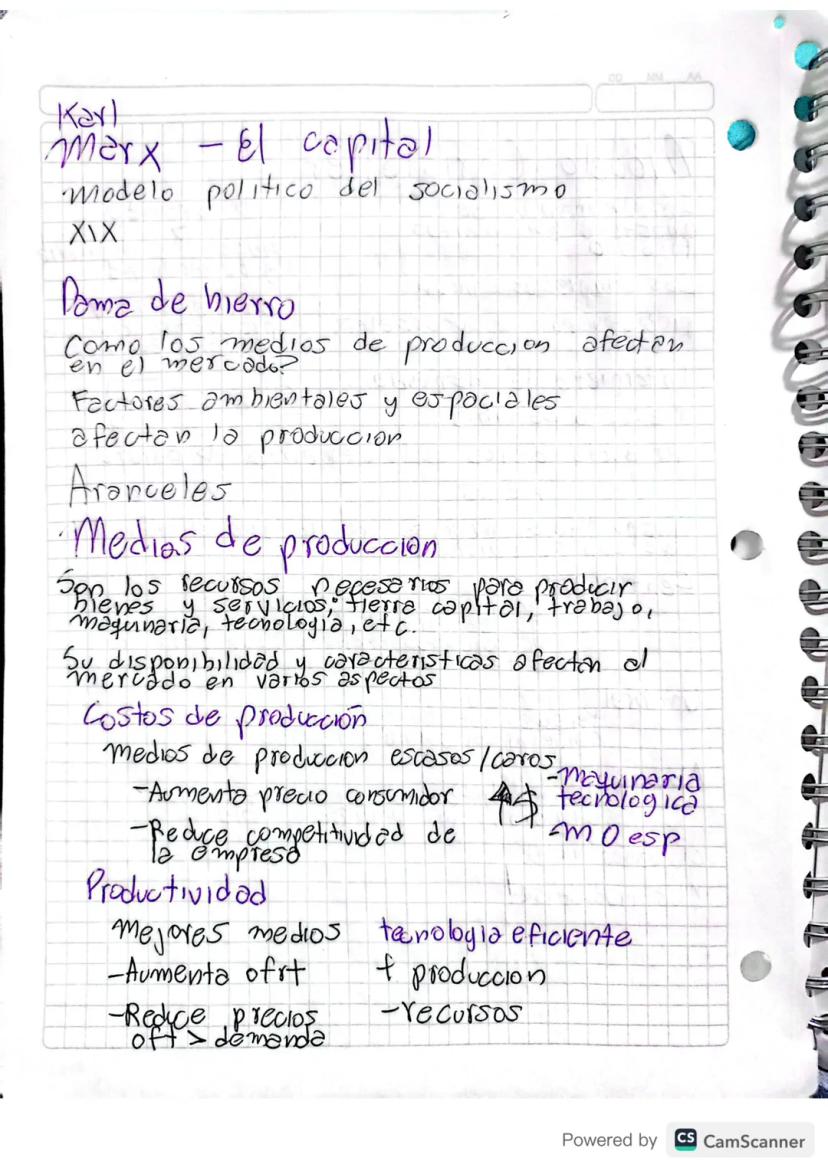 Karl
Marx - El capital
modelo politico del socialismo
XIX
Dama de hierro
Como los medios de produccion afectan
en el mercado?
Factores ambientales y espaciales
afectan la produccion
Aranceles
Medios de produccion
Son los recursos necesarios para producir
bienes y servicios; tierra capital, trabajo,
maquinaria, tecnología, etc.
Su disponibilidad y caracteristicas afectan el
mercado en varios aspectos
Costos de producción
medios de produccion escasos/caros
-Aumenta precio consumidor ↑$
-Reduce competitividad de
la empresa
-Maquinaria
tecnologica
-MO esp
Productividad
Mejores medios tecnologia eficiente
-Aumenta ofrt + produccion
-Reduce precios -recursos
oft > demanda
Powered by CS CamScanner